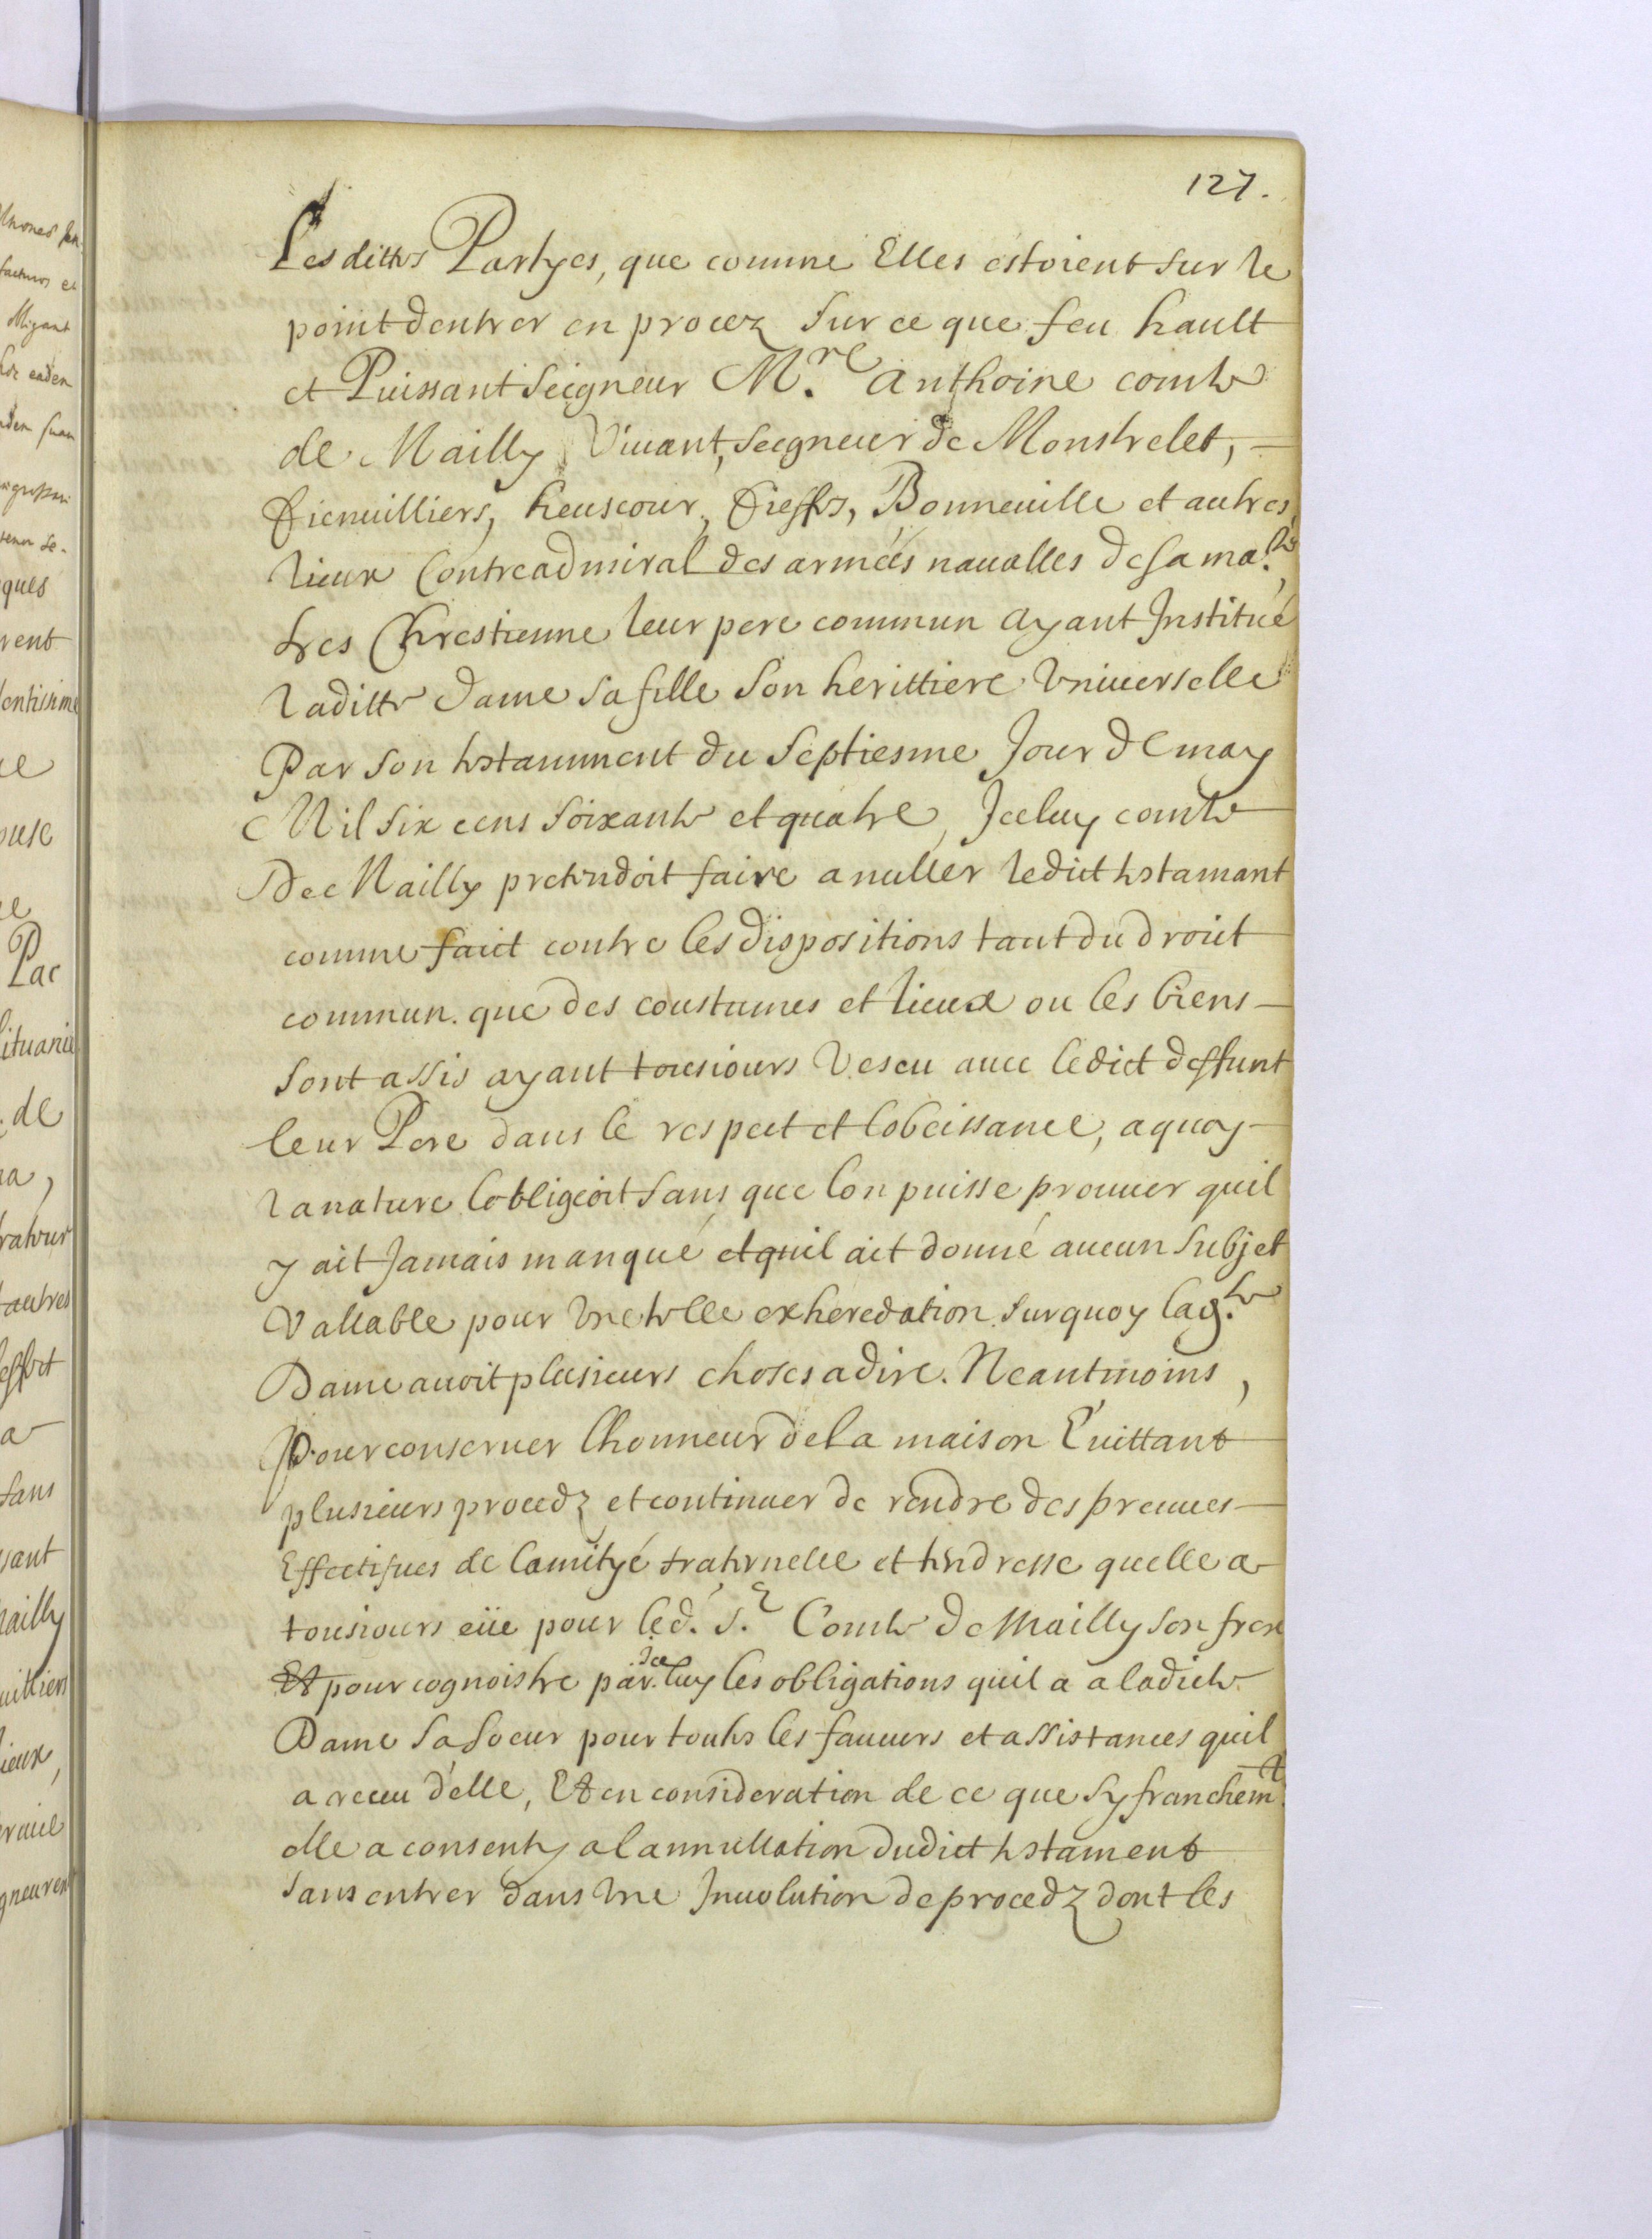 127.
Les dittes Partyes, que comme Elles estoient sur le
point dentrer en procez sur ce que feu hault
et Puissant Seigneur M.re Anthoine comte
de Mailly Viuant, Seigneur de Monstrelet,
Fienuilliers, heuscour, Fieffes, Bonneuille et autres
lieux Contreadmiral des armées naualles de sa ma.te
tres Chrestienne leur pere commun Ayant Institué
laditte Dame sa fille son herittiere Vniuerselle
Par son testamment du Septiesme Jour de may
Mil six cens soixante et quatre, Jceluy comte
De Mailly pretendoit faire anuller ledict testamant
comme faict contre les dispositions tant du droict
commun que des coustumes et lieux ou les biens
sont assis ayant tousiours Vescu auec ledict deffunt
leur Pere dans le respect et lobeissance, a quoy
la nature lobligeoit sans que lon puisse prouuer quil
y ait Jamais manqué et quil ait donné aucun Subjet
Vallable pour Vne telle exheredation surquoy lad.te
Dame auoit plusieurs choses a dire. Neantmoins,
Pour conseruer lhonneur de la maison Euittant
plusieurs procedz et continuer de rendre des preuues
Effectifues de lamityé fraternelle et tendresse quelle a
tousiours eüe pour led. S.r Comte de Mailly son frere
Et pour cognoistre par Jceluy les obligations quil a a ladicte
Dame sa soeur pour toutes les faueurs et assistances quil
a receu d'elle, Et en consideration de ce que sy franchem.t
elle a consenty a lannullation dudict testament
sans entrer dans Vne Jnuolution de procedz dont les
ques
rent
entissime
ouse
Pac
lituanie
de
autres
effect
sans
Mailly
uilliers
lieux,